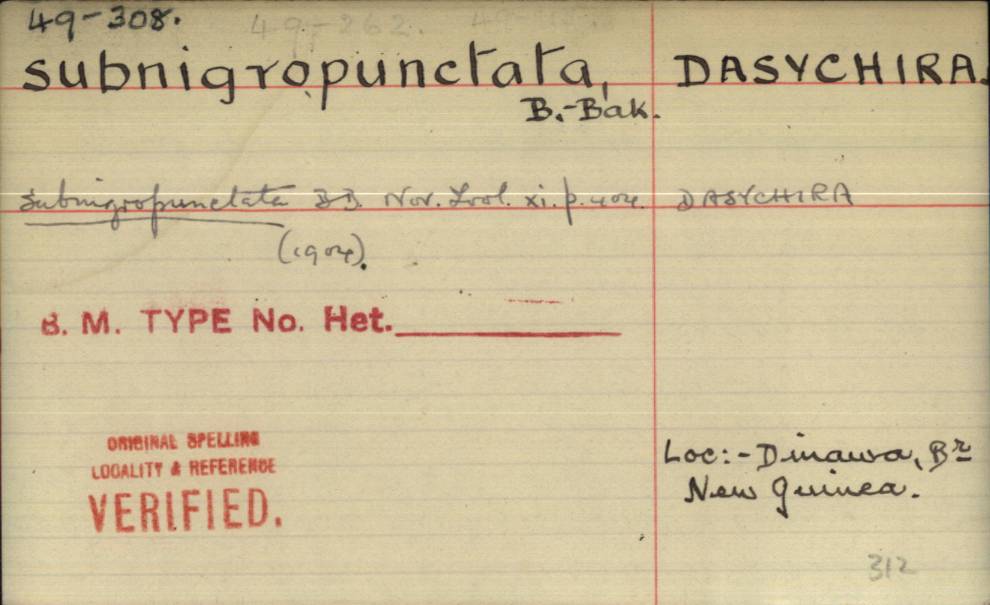 49-308. 49-262.
subnigropunctata, DASYCHIRA.
B.-Bak.
subnigropunctata BB. Nov. Zool. xi. p. 404. DASYCHIRA
(1904).
B. M. TYPE No. Het.
ORIGINAL SPELLING
LOCALITY & REFERENCE
VERIFIED.
Loc:- Dinawa, Br
New Guinea.
312